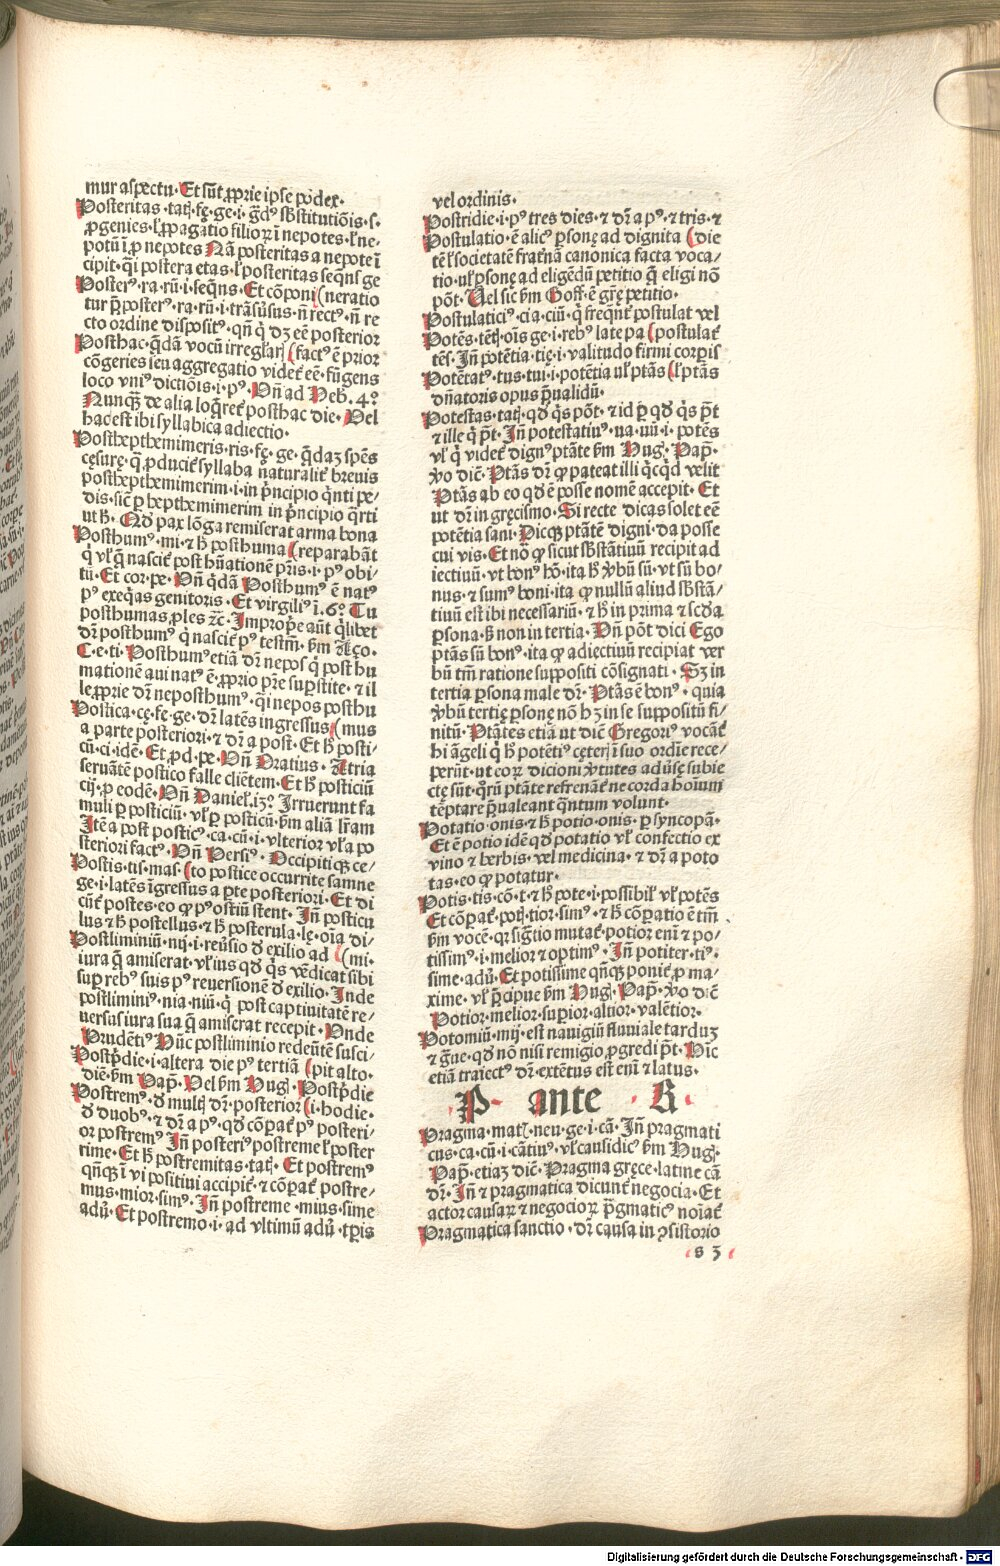 mur aspectu. Et sūt ꝓprie ipse podex.
Posteritas. tatꝭ. fę. ge. i. gͣdꝰ sb̄stitutiōis. s.
ꝓgenies. l̓ ꝓpagatio filioꝝ ī nepotes. l̓ ne-
potū ī ꝓ nepotes Nā posteritas a nepote ī
cipit. qͣi postera etas. l̓ posteritas seqn̄s ge
Posterꝰ. ra. rū. i. seqn̄s. Et cōponi (neratio
tur p̄posterꝰ. ra. rū. i. trāsūsus. n̄ rectꝰ. n̄ re
cto ordine dispositꝰ. qn̄ q̇ dꝫ eē posterior
Posthac. q̄dā vocū irreglarꝭ (factꝰ ē prior
cōgeries seu aggregatio videt̄ eē. fūgens
loco vniꝰ dictiōis. i. pꝰ. Vn̄ ad Heb. 4º
Nunqͣꝫ de alia loq̄ret̄ posthac die. Vel
hac est ibi syllabica adiectio.
Posthepthemimeris. ris. fę. ge. q̄daꝫ spēs
cęsurę. q̄ ꝓducit̄ syllaba naturalit̄ brevis
posthepthemimerim. i. in p̄ncipio qͥnti pe-
dis. sic̄ ꝑ hepthemimerim in p̄ncipio qͣrti
ut ħ. Qd̄ pax lōga remiserat arma bona
Posthumꝰ. mi. ⁊ ħ posthuma (reparabāt
q̇ vl̓ q̄ nascit̄ post hūationē pr̄is. i. pꝰ obi-
tū. Et cor. pe. Vn̄ qͥdā Posthumꝰ ē natꝰ
pꝰ exeqͥas genitoris. Et virgiliꝰ ī. 6º Tu
posthumas ꝓles ⁊c̄. Improp̄e aūt qͥlibet
dr̄ posthumꝰ q̇ nascit̄ pꝰ testm̄. ẜm Rͣ. ī ꝓ.
C. e. ti. Posthumꝰ etiā dr̄ nepos q̇ post hu
mationē aui natꝰ ē. ꝓprio pr̄e suꝑstite. ⁊ il
le ꝓprie dr̄ neposthumꝰ. qͣi nepos posthu
Postica. cę. fe. ge. dr̄ latēs ingressus (mus
a parte posteriori. ⁊ dr̄ a post. Et ħ posti-
cū. ci. idē. Et ꝓd. pe. Vn̄ Oratius. Atria
seruātē postico falle cliētem. Et ħ posticiū
cij. ꝓ eodē. Vn̄ Daniel. 13º Irruerunt fa
muli ꝑ posticiū. vl̓ ꝑ posticū. ẜm aliā lr̄am
Itē a post posticꝰ. ca. cū. i. vlterior vl̓ a po
steriori factꝰ. Vn̄ Persiꝰ. Occipitiqꝫ ce-
Postis. tis. mas. (to postice occurrite samne
ge. i. latēs īgressus a ꝑte posteriori. Et di
cūt̄ postes. eo ꝙ pꝰ ostiū stent. In̄ posticu
lus ⁊ ħ postellus. ⁊ ħ posterula. lę. oīa di-
Postliminiū. nij. i. reūsio d̓ exilio ad (mi.
iura q̄ amiserat. vl̓ ius qd̄ qͥs vēdicat sibi
suꝑ rebꝰ suis pꝰ reversionē d̓ exilio. Inde
postliminiꝰ. nia. niū. q̇ post captivitatē re-
uersus iura sua q̄ amiserat recepit. Vnde
Prudētiꝰ Hūc postliminio redeūtē susci-
Postp̄die. i. altera die pꝰ tertiā (pit alto.
diē. ẜm Pap̄. Vel ẜm Hug̓. Postp̄die
Postremꝰ. d̓ multꝭ dr̄. posterior (i. hodie.
d̓ duobꝰ. ⁊ dr̄ a pꝰ. qd̄ cōꝑat̄ pꝰ posteri-
or postremꝰ In̄ posteriꝰ postreme l̓ poster
rime. Et ħ postremitas. tatꝭ. Et postremꝰ
qn̄qꝫ ī vi positiui accipit̄. ⁊ cōꝑat̄ postre-
mus. mior. simꝰ. In̄ postreme. mius. sime
adū̓. Et postremo. i. ad vltimū adū̓. tꝑis
vel ordinis.
Postridie. i. pꝰ tres dies. ⁊ dr̄ a pꝰ. ⁊ tris. ⁊
Postulatio. ē alicꝰ ꝑsonę ad dignita (die
tē l̓ societatē frat̄nā canonica facta voca-
tio. ul̓ ꝑsonę ad eligēdū petitio q̄ eligi nō
pōt. Uel sic ẜm Goff. ē gr̄ę petitio.
Postulaticiꝰ. cia. ciū. q̇ freqn̄t̄ postulat vel
Potēs. tētꝭ. oīs ge. i. rebꝰ late pa (postulat̄
tēs. In̄ potētia. tię. i. valitudo firmi corꝑis
Potētatꝰ. tus. tui. i. potētia ul̓ ptās (l̓ ptās
dn̄atoris opus p̄ualidū.
Potestas. tatꝭ. qd̄ qͥs pōt. ⁊ id ꝑ qd̄ qͥs p̄t
⁊ ille q̇ p̄t. In̄ potestatiuꝰ. ua. uū. i. potēs
vl̓ q̇ videt̄ dignꝰ ptāte ẜm Hug̓. Pap̄.
ꝟo diē. Ptās dr̄ ꝙ pateat illi qͥcqͥd velit
Ptās ab eo qd̄ ē posse nomē accepit. Et
ut dr̄ in gręcismo. Si recte dicas solet eē
potētia sani. Dicqꝫ ptātē digni. da posse
cui vis. Et nō ꝙ sicut sb̄stātiuū recipit ad
iectiuū. vt bonꝰ hō. ita ħ ꝟbū sū. vt sū bo-
nus. ⁊ sumꝰ boni. ita ꝙ nullū aliud sb̄stā-
tiuū est ibi necessariū. ⁊ ħ in prima ⁊ scd̄a
ꝑsona. s̄ non in tertia. Vn̄ pōt dici Ego
ptās sū bonꝰ. ita ꝙ adiectiuū recipiat ver
bū tm̄ ratione suppositi cōsignati. Sꝫ in
tertia ꝑsona male dr̄. Ptās ē bonꝰ. quia
ꝟbū tertię ꝑsonę nō hꝫ in se suppositū fi-
nitū. Ptātes etiā ut dic̄ Gregoriꝰ vocāt̄
hi āgeli q̇ ħ potētiꝰ cęterꝭ ī suo ordīe rece-
perūt. ut eoꝝ dicioni ꝟtutes adūsę subie
ctę sūt. qͣrū ptāte refrenāt̄ ne corda hoīum
tēptare p̄ualeant qͣntum volunt.
Potatio. onis. ⁊ ħ potio. onis. ꝑ syncopā.
Et ē potio idē qd̄ potatio vl̓ confectio ex
vino ⁊ herbis. vel medicina. ⁊ dr̄ a poto
tas. eo ꝙ potatur.
Potis. tis. cō. t. ⁊ ħ pote. i. possibil̓ vl̓ potēs
Et cōꝑat̄. potꝭ. tior. simꝰ. ⁊ ħ cōꝑatio ē tm̄.
ẜm vocē. qr sigͣtio mutat̄. potior enī ⁊ po-
tissimꝰ. i. melior ⁊ optimꝰ. In̄ potiter. tiꝰ.
sime. adū̓. Et potissime qn̄qꝫ ponit̄ ꝓ ma-
xime. vl̓ p̄cipue ẜm Hug̓. Pap̄. ꝟo dic̄
Potior. melior. suꝑior. altior. valētior.
Potomiū. mij. est nauigiū fluuiale tarduꝫ
⁊ gͣue. qd̄ nō nisi remigio ꝓgredi p̄t. Hic̄
etiā traiectꝰ dr̄. extētus est enī ⁊ latus.
P. ante . R.
Pragma. matꝭ. neu. ge. i. cā. In̄ pragmati
cus. ca. cū. i. cātiuꝰ. vl̓ causidicꝰ ẜm Hug̓.
Pap̄. etiaꝫ dic̄. Pragma gręce. latine cā
dr̄. In̄ ⁊ pragmatica dicunt̄ negocia. Et
actor causaꝝ ⁊ negocioꝝ p̄gmaticꝰ noīat̄
Pragmatica sanctio. dr̄ causa in ꝯsistorio
s 3
Digitalisierung gefördert durch die Deutsche Forschungsgemeinschaft - DFG